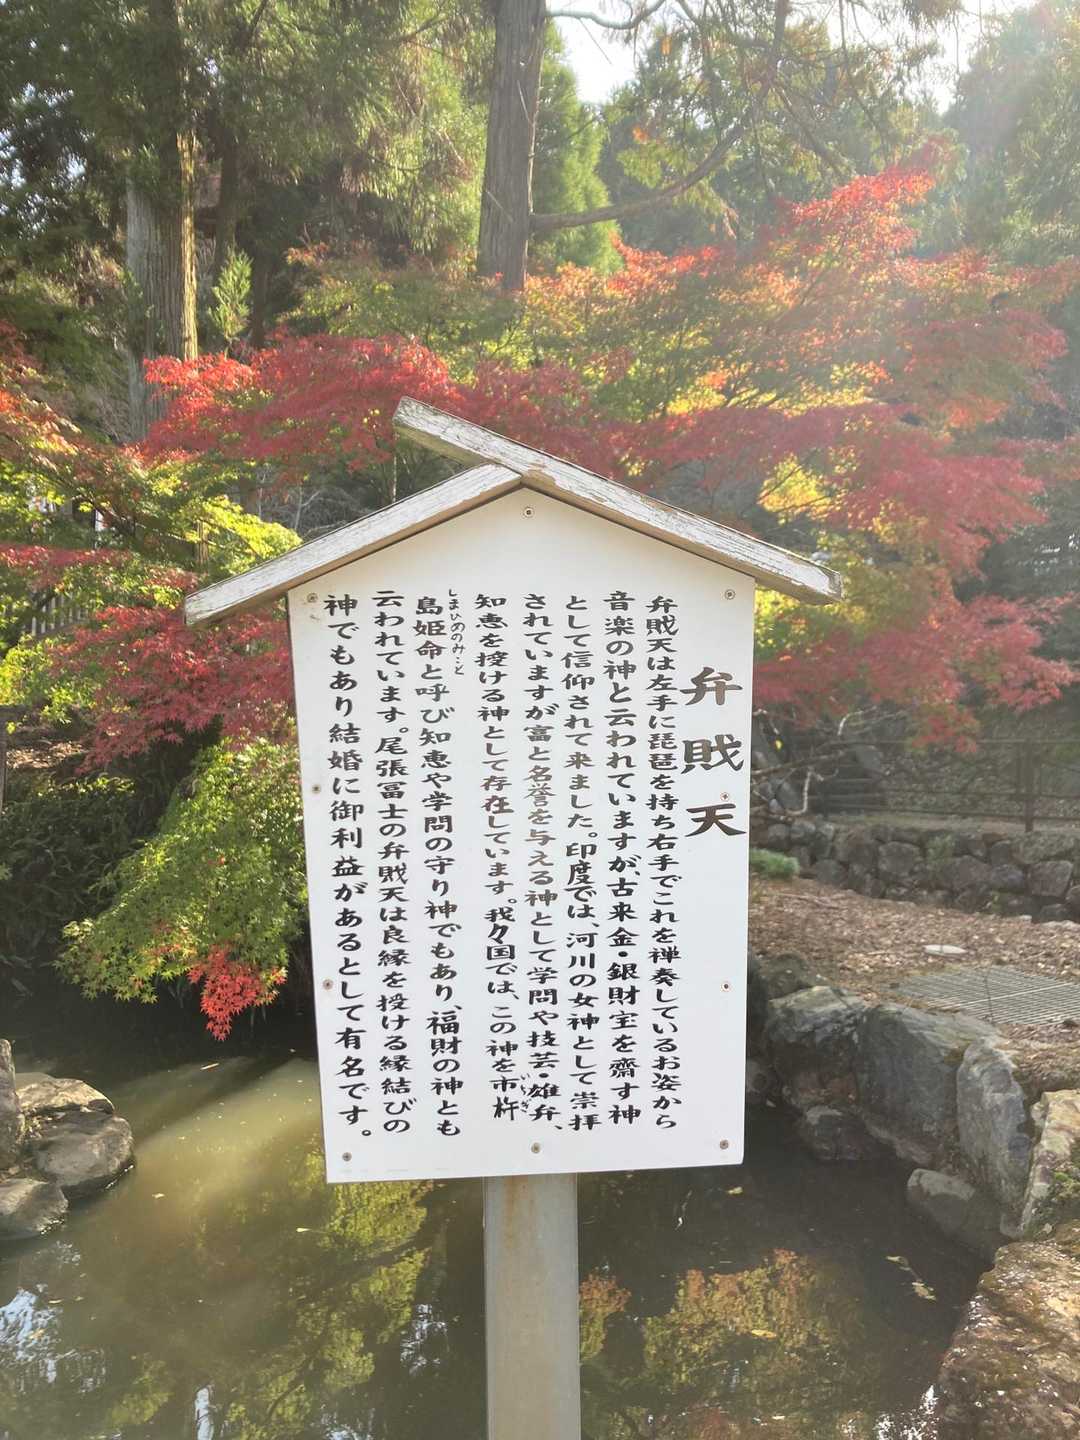 弁賊天
弁賊天は左手に琵琶を持ち右手でこれを禅奏しているお姿から
音楽の神と云われていますが、古来金・銀財宝を齋す神
として信仰されて来ました。印度では、河川の女神として崇拝
されていますが富と名誉を与える神として学問や技芸・雄弁、
知恵を授ける神として存在しています。我々国では、この神を市杵
島姫命と呼び知恵や学問の守り神でもあり、福財の神とも
云われています。尾張冨士の弁賊天は良縁を授ける縁結びの
神でもあり結婚に御利益があるとして有名です。
いちぎ
しまひめのみこと